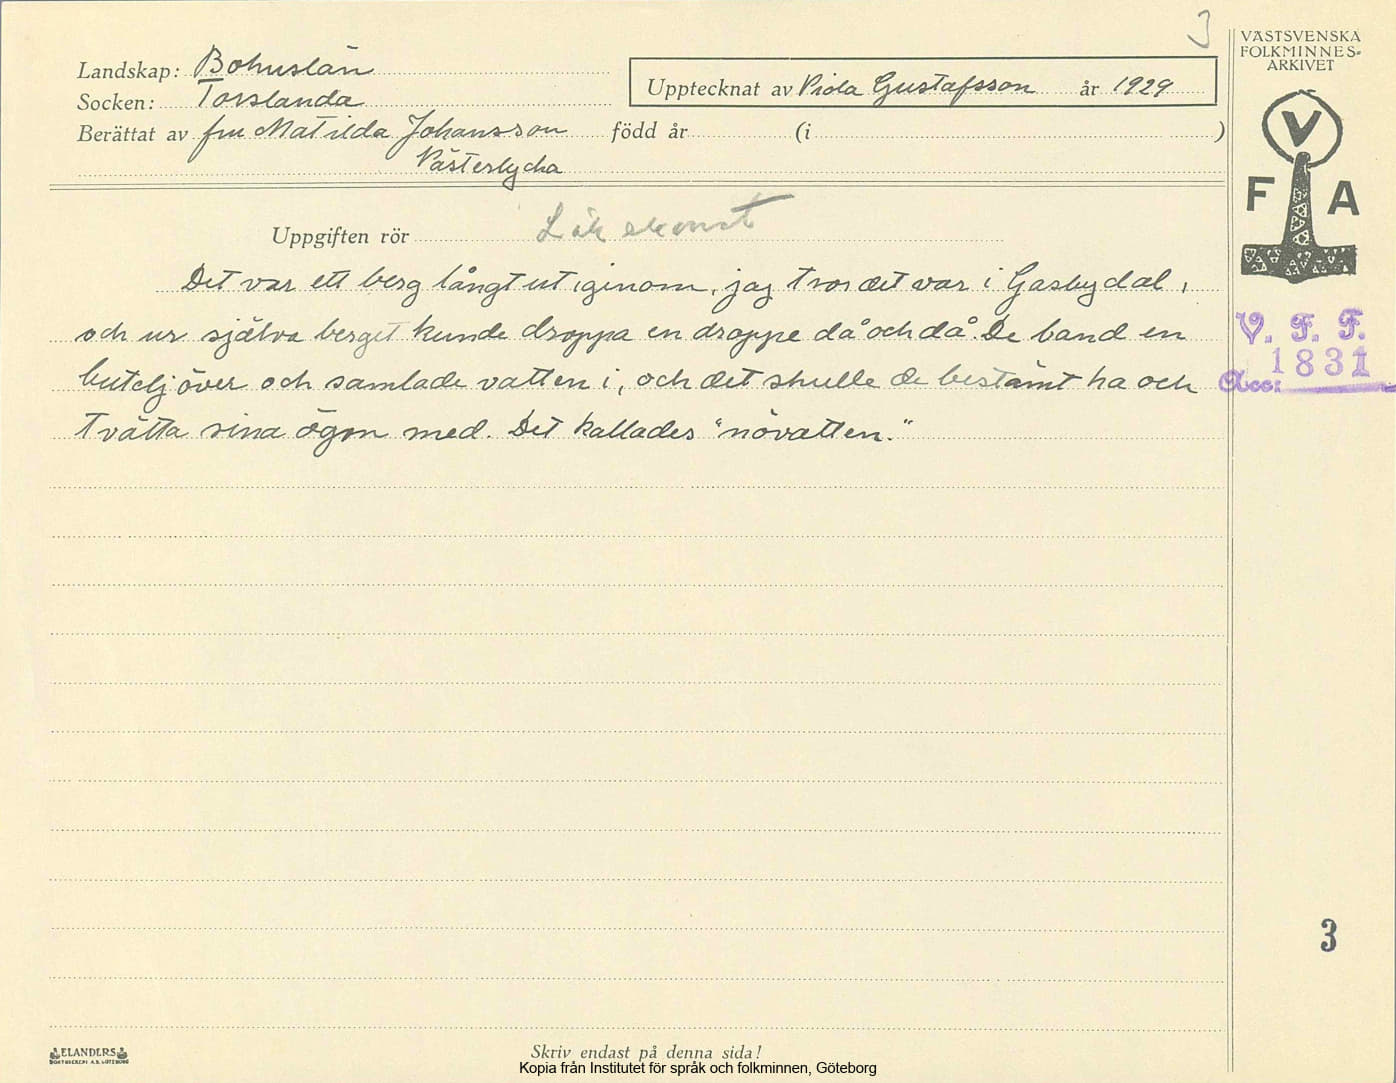 3
VÄSTSVENSKA
FOLKMINNES-
ARKIVET
Landskap: Bohuslän
Upptecknat av Viola Gustafsson år 1929
Socken: Torslanda
Berättat av fru Matilda Johansson född år (i )
Västerlycka
V
F A
Uppgiften rör Läkekonst
Det var ett berg långt ut iginom, jag tror det var i Gasbydal,
och ur själva berget kunde droppa en droppe då och då. De band en
butelj över och samlade vatten i, och det skulle de bestämt ha och
tvätta sina ögon med. Det kallades "nôvatten."
V. F. F.
1831
Acc:
3
ELANDERS
BOKTRYCKERI A.B. GÖTEBORG
Skriv endast på denna sida!
Kopia från Institutet för språk och folkminnen, Göteborg